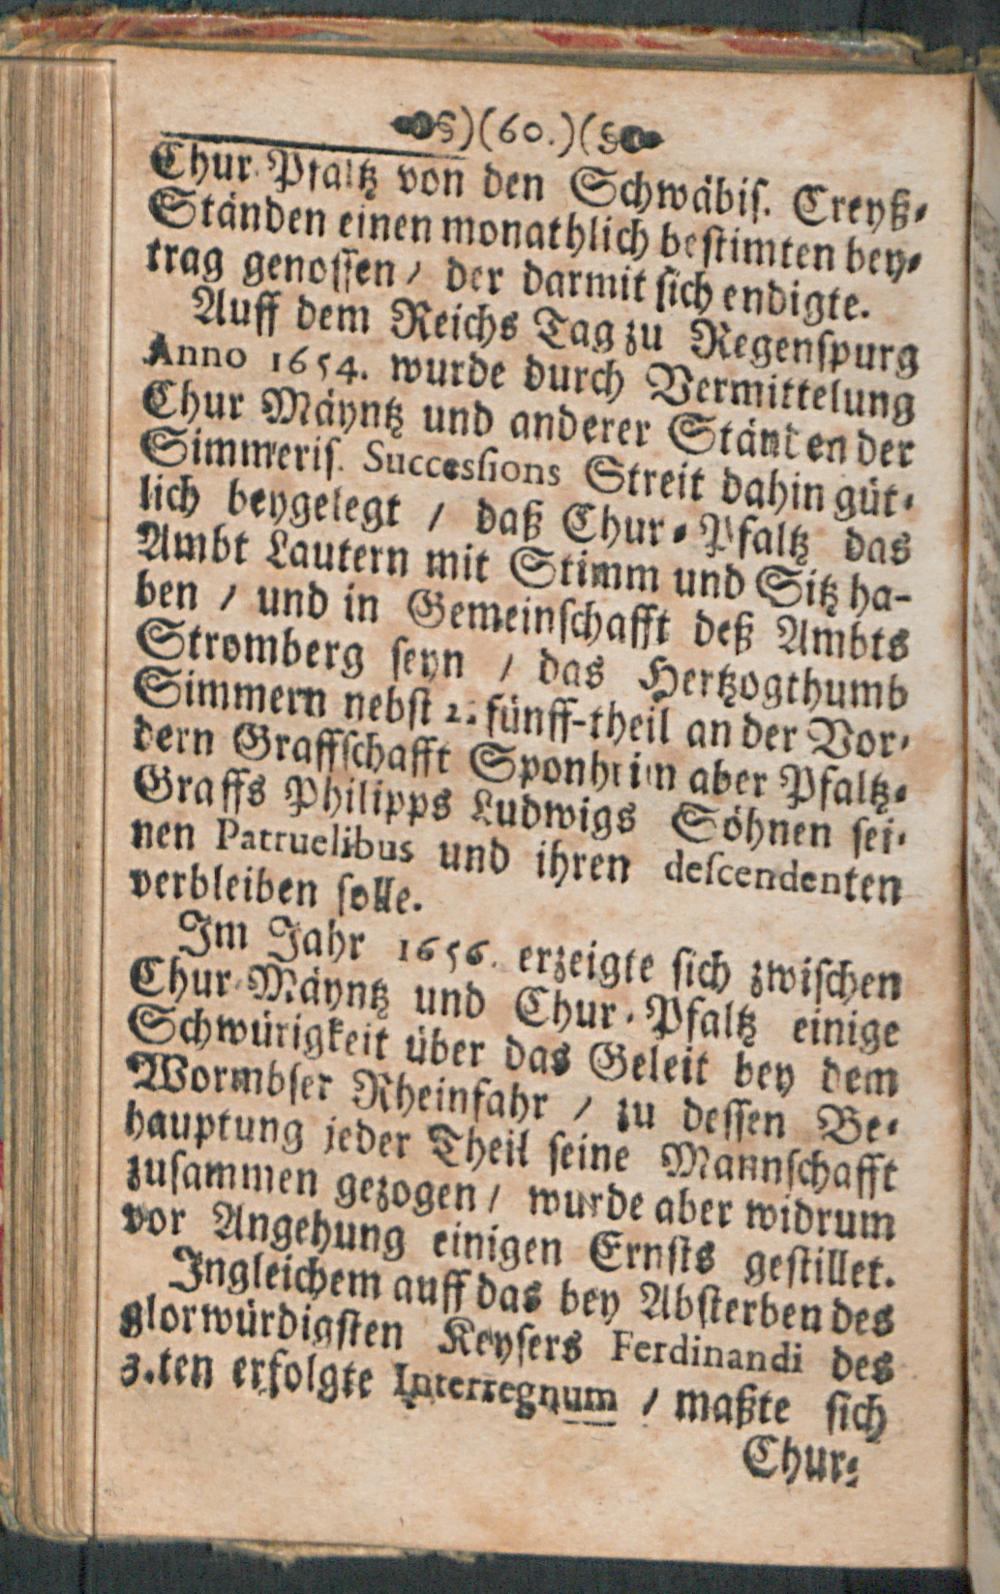 §)(60.)(§
Chur-Pfaltz von den Schwäbis. Creyß-
Ständen einen monathlich bestimten bey-
trag genossen / der darmit sich endigte.
Auff dem Reichs Tag zu Regenspurg
Anno 1654. wurde durch Vermittelung
Chur Mäyntz und anderer Ständen der
Simmeris. Successions Streit dahin güt-
lich beygelegt / daß Chur-Pfaltz das
Ambt Lautern mit Stimm und Sitz ha-
ben / und in Gemeinschafft deß Ambts
Stromberg seyn / das Hertzogthumb
Simmern nebst 2. fünff-theil an der Vor-
dern Graffschafft Sponheim aber Pfaltz-
Graffs Philipps Ludwigs Söhnen sei-
nen Patruelibus und ihren descendenten
verbleiben solle.
Im Jahr 1656. erzeigte sich zwischen
Chur-Mäyntz und Chur-Pfaltz einige
Schwürigkeit über das Geleit bey dem
Wormbser Rheinfahr / zu dessen Be-
hauptung jeder Theil seine Mannschafft
zusammen gezogen / wurde aber widrum
vor Angehung einigen Ernsts gestillet.
Ingleichem auff das bey Absterben des
glorwürdigsten Keysers Ferdinandi des
3.ten erfolgte Interregnum / maßte sich
Chur-